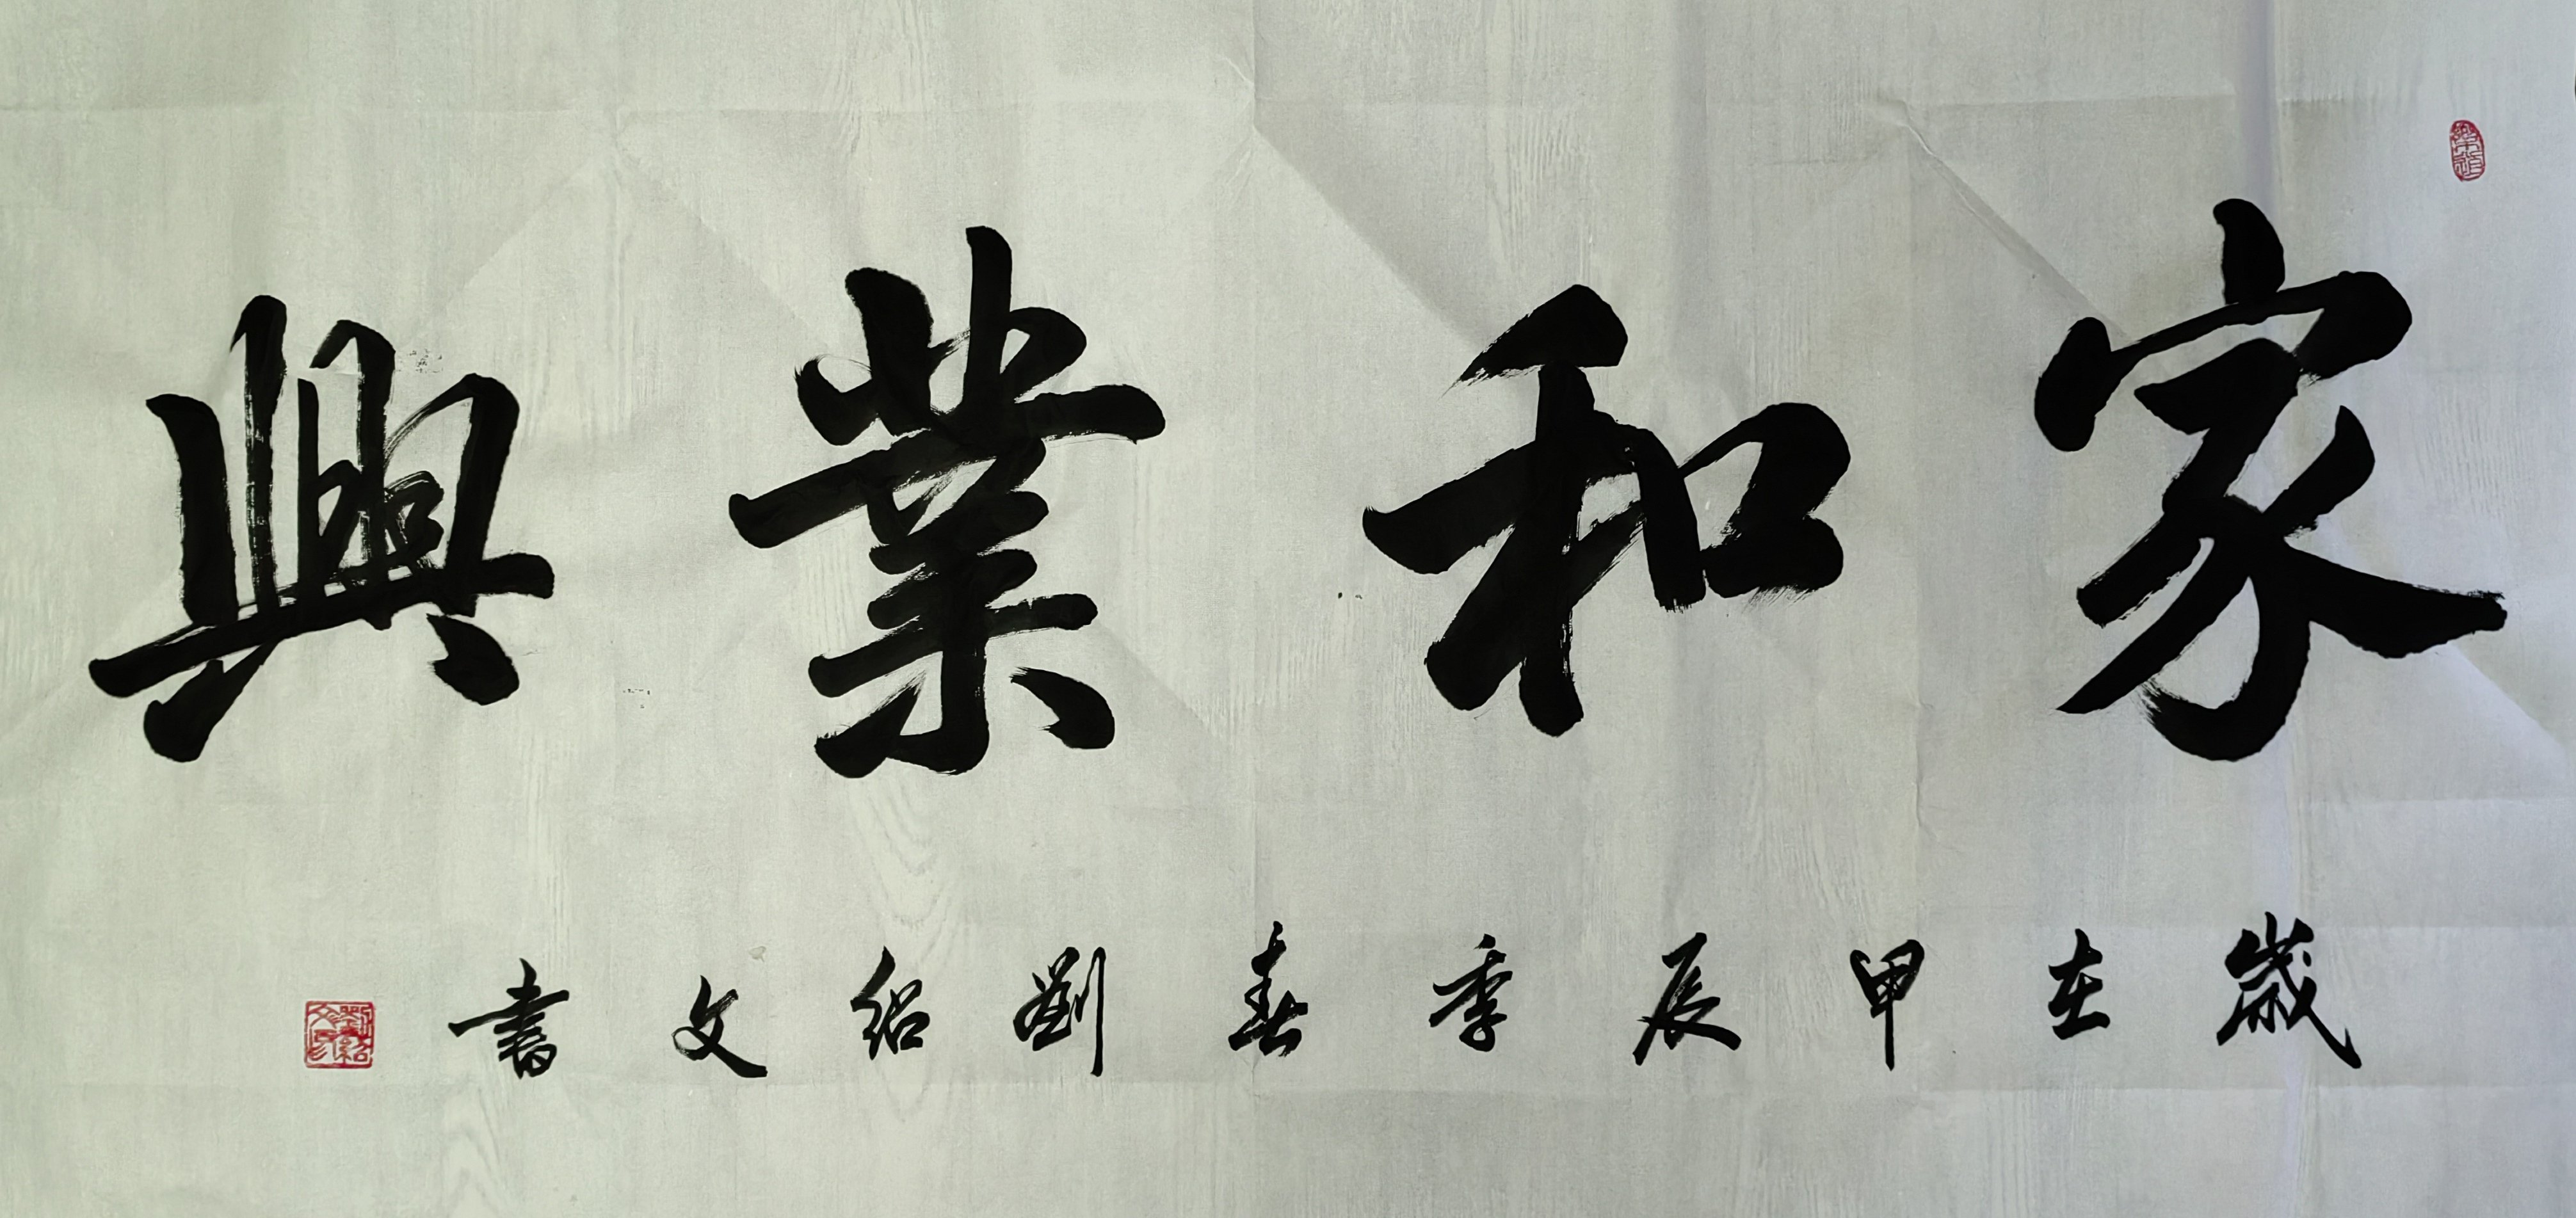 家和業興
歲在甲辰季春劉紹文書